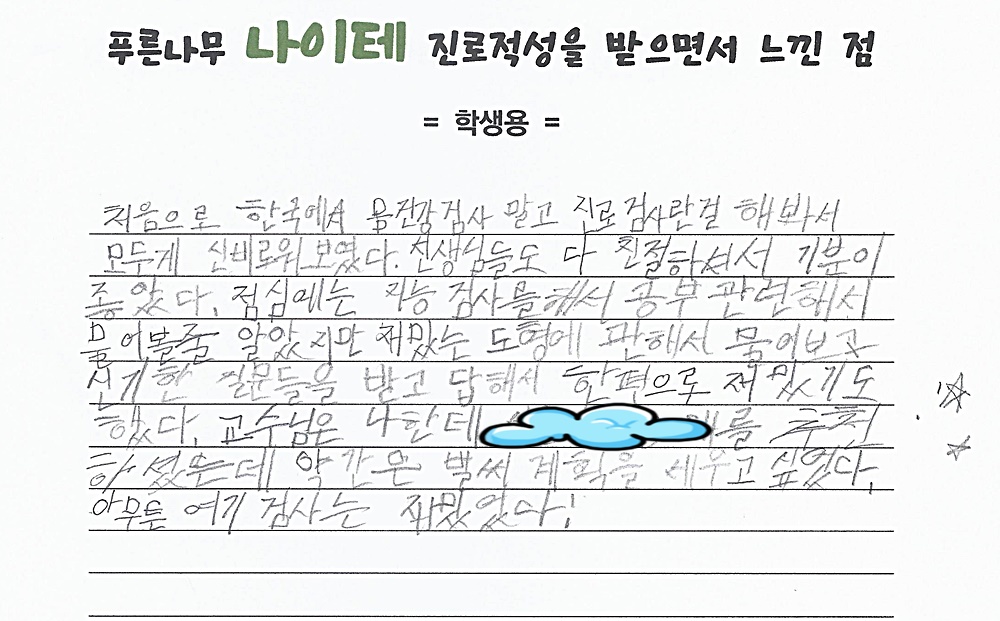 푸른나무 나이테 진로적성을 받으면서 느낀 점
= 학생용 =
처음으로 한국에서 몸건강검사 말고 진로검사란걸 해봐서
모두게 신비로워 보였다. 선생님들도 다 친절하셔서 기분이
좋았다. 점심에는 지능 검사를해서 공부 관련해서
물어볼줄 알았지만 재밌는 도형에 관해서 물어보고
신기한 질문들을 받고 답해서 한편으로 재밌기도
했다. 교수님은 나한테 를 추천
하셨는데 약간은 벌써 계획을 세우고 싶었다.
아무튼 여기 검사는 재밌었다!